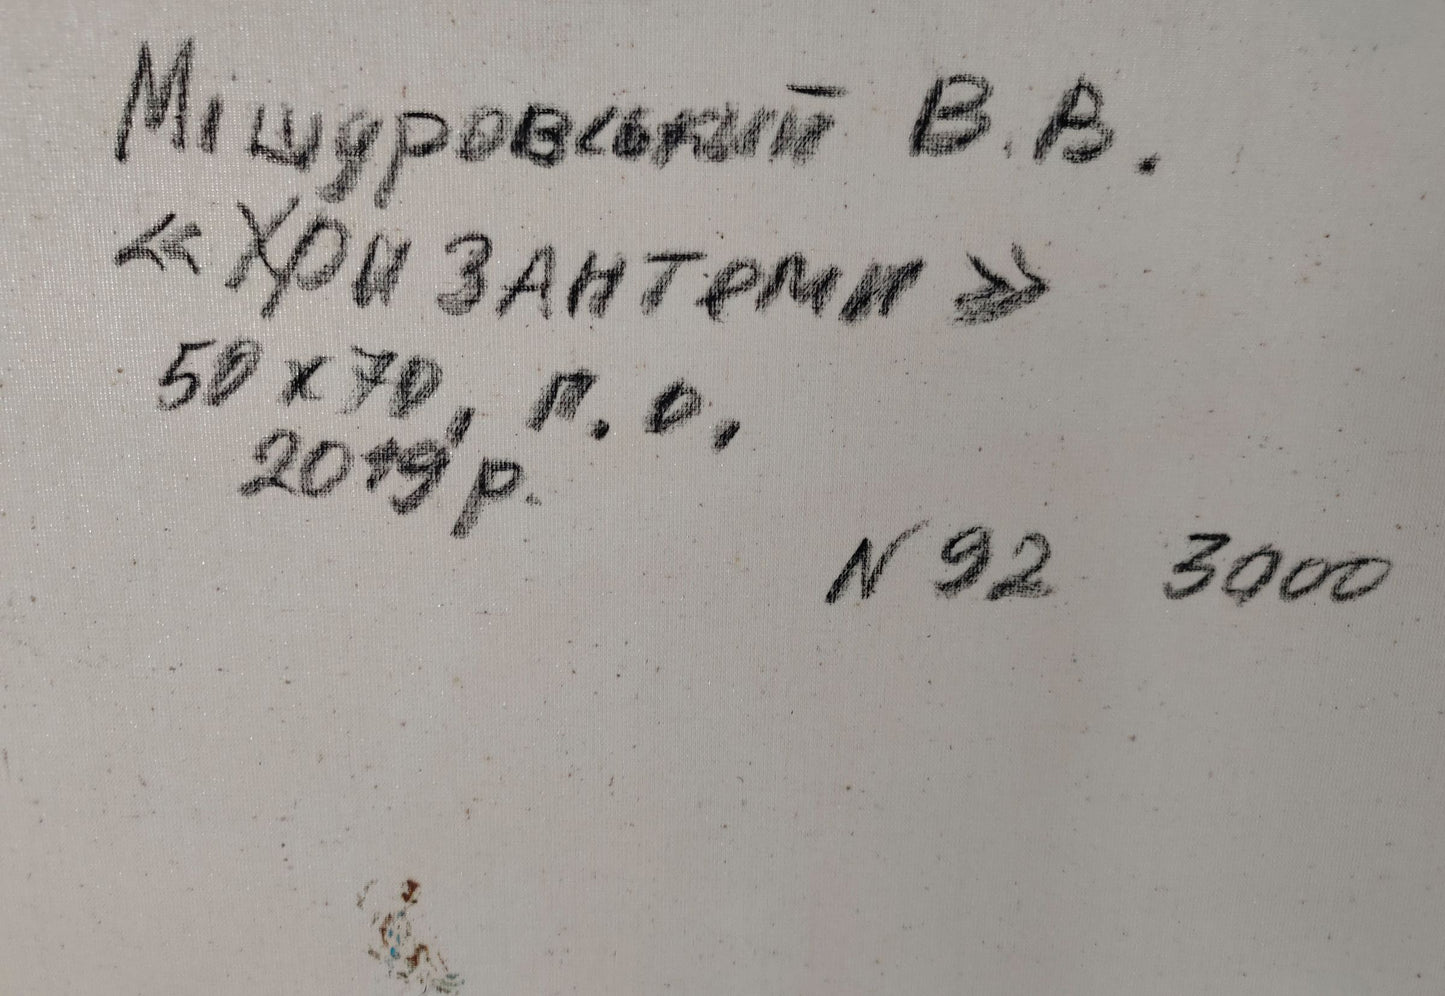 Мішуровський В. В.
«Хризантеми»
50 х 70, п. о.,
2019 р.
N 92 3000